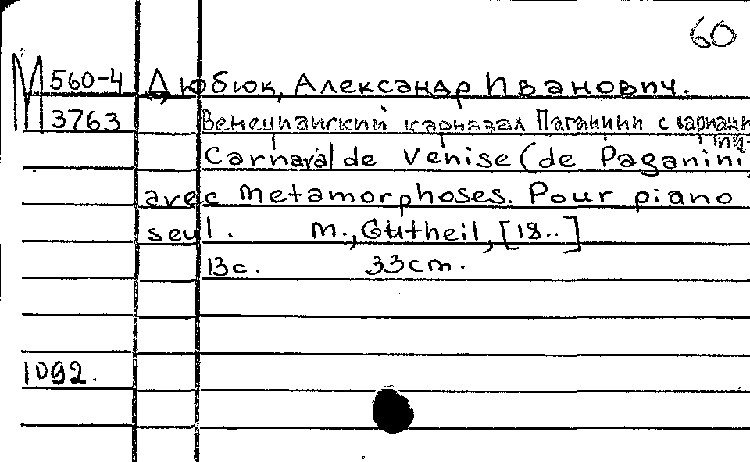 60
М 560-4 Дюбюк, Александр Иванович.
3763 Венецианский карнавал Паганини с вариац
Carnaval de Venise (de Paganini)
avec metamorphoses. Pour piano
seul. М., Gutheil, [18..]
13с. 33см.
1092.